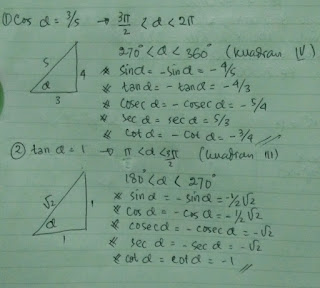 ① Cos α = 3/5 → 3π/2 < α < 2π
270° < α < 360° (kuadran IV)
5 4
α
3
* sin α = - sin α = - 4/5
* tan α = - tan α = - 4/3
* cosec α = - cosec α = - 5/4
* sec α = sec α = 5/3
* cot α = - cot α = - 3/4 //
② tan α = 1 → π < α < 3π/2 (kuadran III)
180° < α < 270°
√2 1
α
1
* sin α = - sin α = - ½√2
* cos α = - cos α = - ½√2
* cosec α = - cosec α = - √2
* sec α = - sec α = - √2
* cot α = cot α = - 1 //